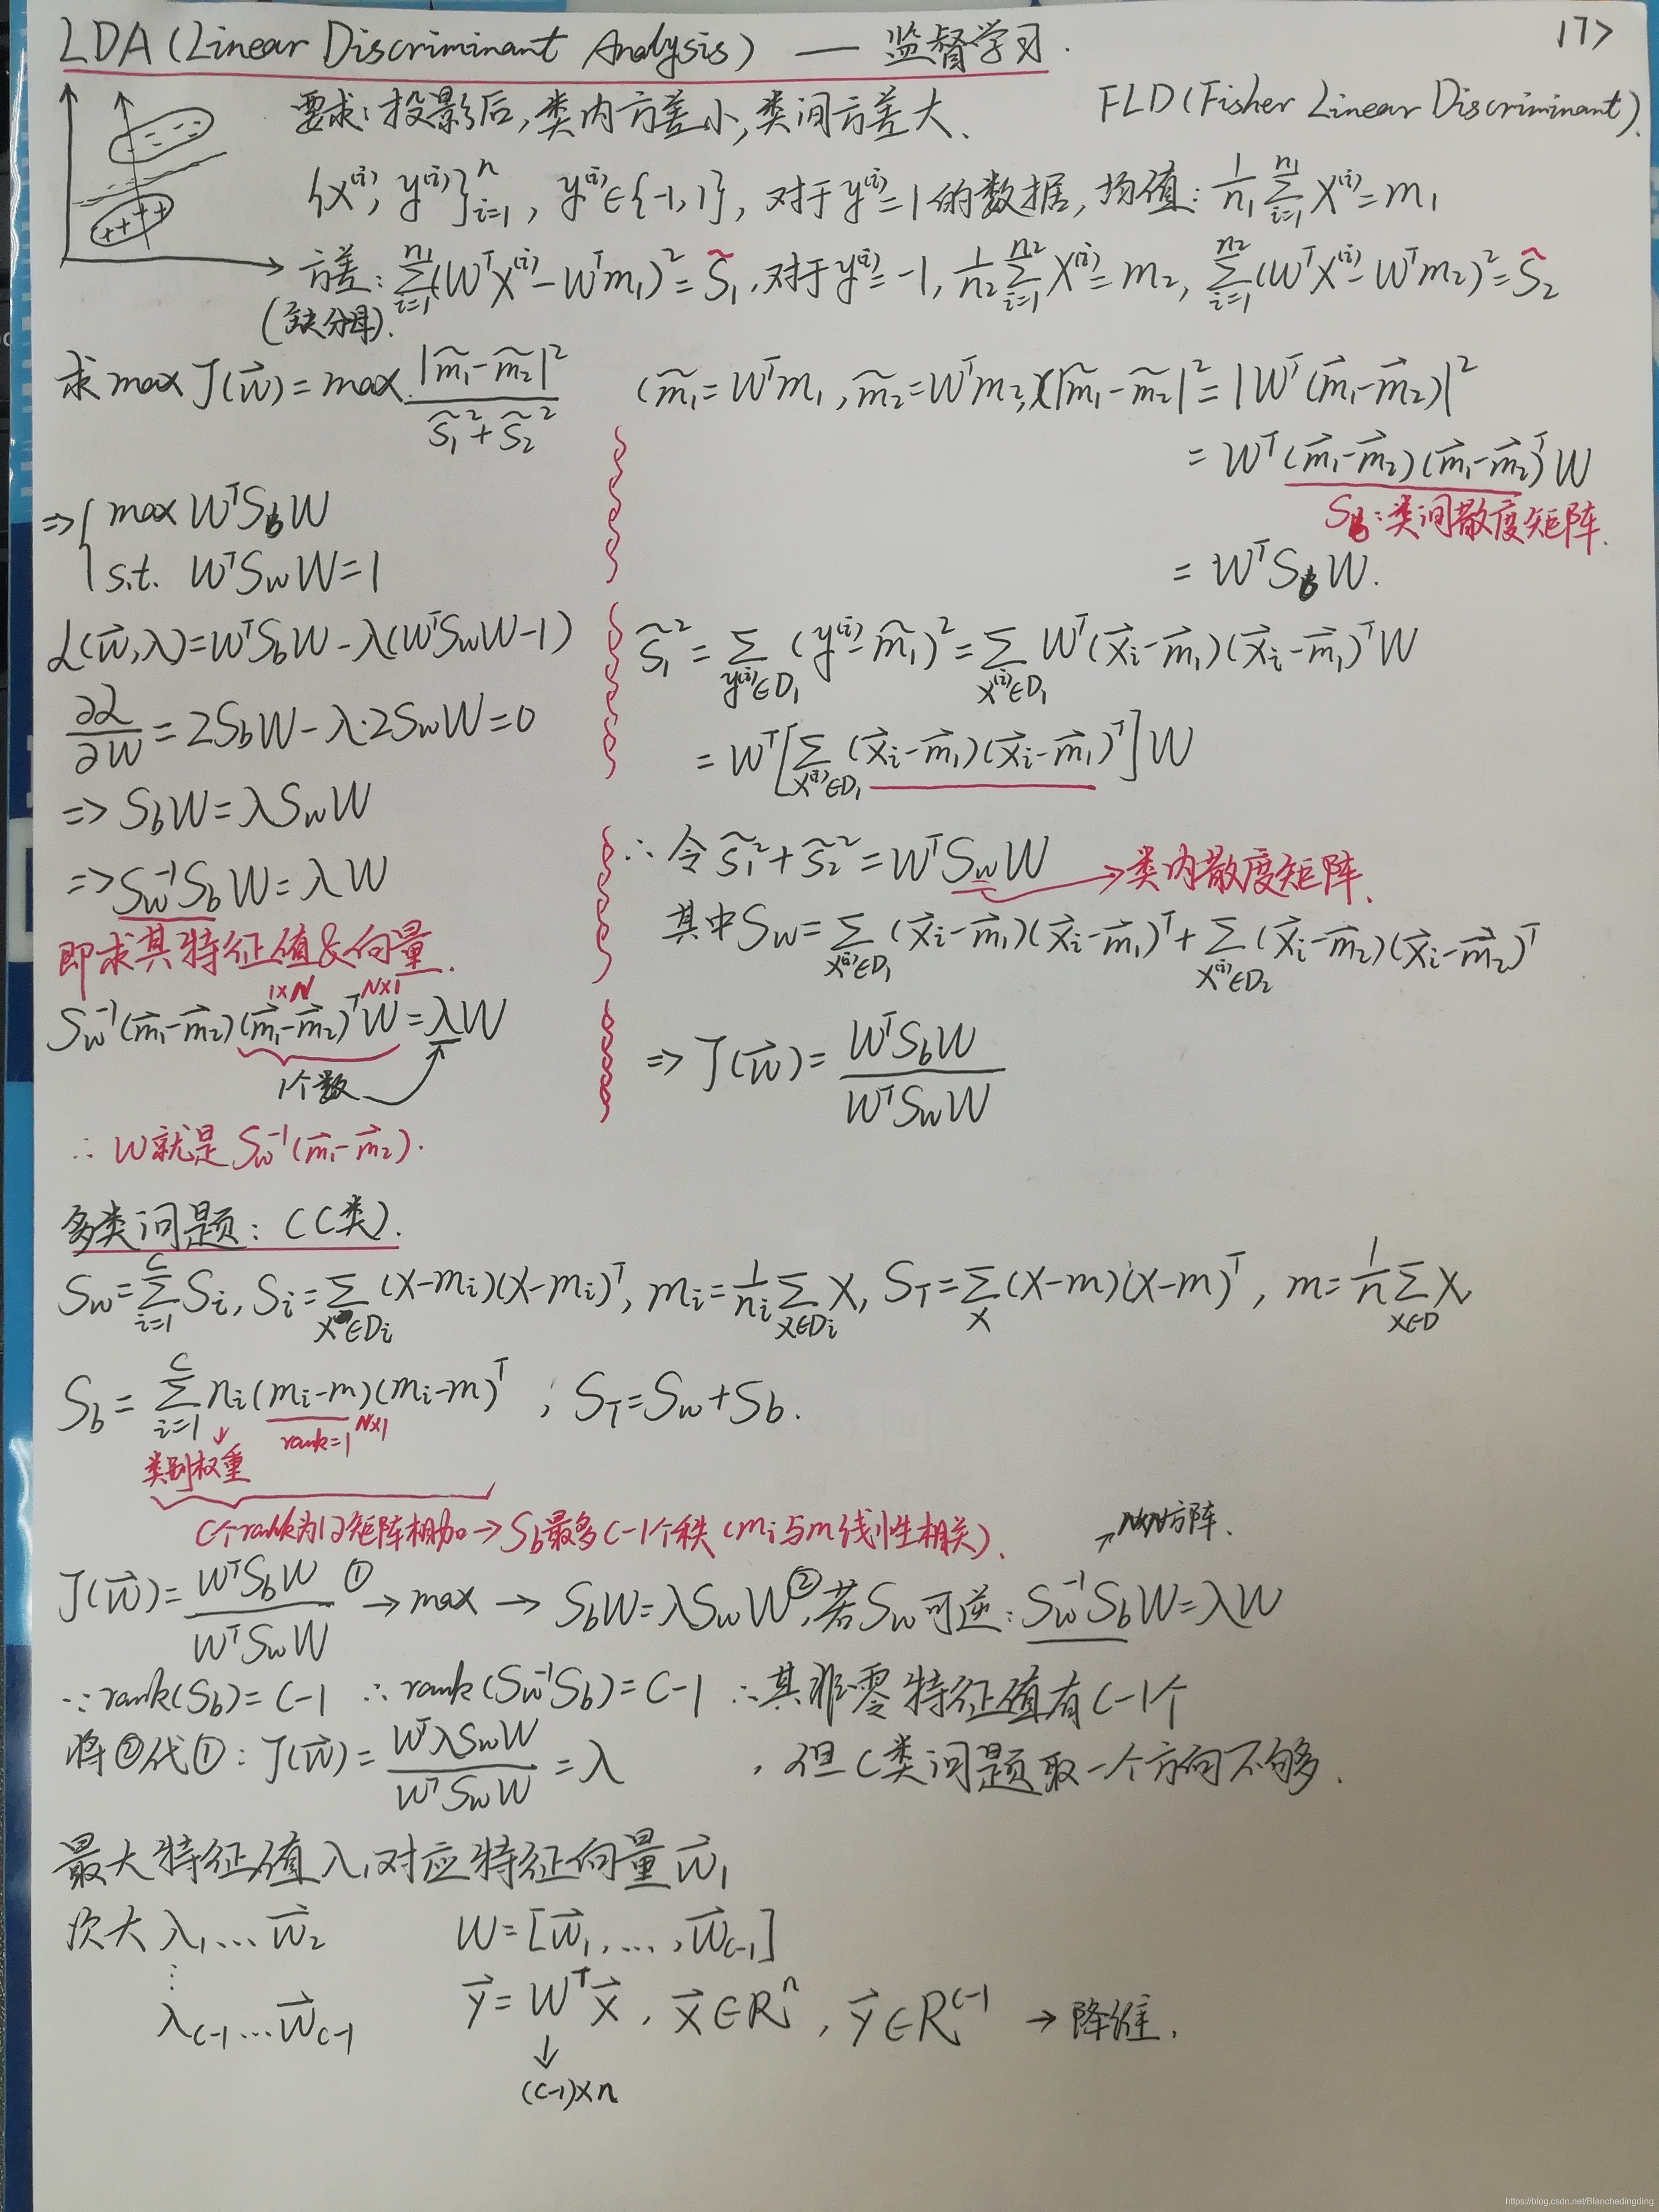 LDA(Linear Discriminant Analysis) — 监督学习.
17>
要求:投影后,类内方差小,类间方差大、
FLD(Fisher Linear Discriminant).
{x⁽ⁱ⁾, y⁽ⁱ⁾}ⁿᵢ₌₁, y⁽ⁱ⁾∈{-1,1}, 对于y⁽ⁱ⁾=1的数据,均值: 1/n₁ Σᵢ₌₁ⁿ¹ X⁽ⁱ⁾=m₁
方差: Σᵢ₌₁ⁿ¹(WᵀX⁽ⁱ⁾-Wᵀm₁)²=S̃₁, 对于y⁽ⁱ⁾=-1, 1/n₂ Σᵢ₌₁ⁿ² X⁽ⁱ⁾=m₂, Σᵢ₌₁ⁿ²(WᵀX⁽ⁱ⁾-Wᵀm₂)²=S̃₂
(缺分母).
求 max J(w⃗)=max |m̃₁-m̃₂|²/(S̃₁²+S̃₂²)
(m̃₁=Wᵀm₁, m̃₂=Wᵀm₂)(|m̃₁-m̃₂|²=|Wᵀ(m⃗₁-m⃗₂)|²
=Wᵀ(m⃗₁-m⃗₂)(m⃗₁-m⃗₂)ᵀW
S_B:类间散度矩阵.
=WᵀS_BW.
⇒{ max WᵀS_BW
s.t. WᵀS_wW=1
L(w⃗,λ)=WᵀS_bW-λ(WᵀS_wW-1)
∂L/∂W=2S_bW-λ·2S_wW=0
⇒S_bW=λS_wW
⇒S_w⁻¹S_bW=λW
即求其特征值&向量.
1×N N×1
S_w⁻¹(m⃗₁-m⃗₂)(m⃗₁-m⃗₂)ᵀW=λW
1个数
∴W就是S_w⁻¹(m⃗₁-m⃗₂).
S̃₁²=Σ_{y⁽ⁱ⁾∈D₁}(y⁽ⁱ⁾-m̃₁)²=Σ_{x⁽ⁱ⁾∈D₁}Wᵀ(x⃗ᵢ-m⃗₁)(x⃗ᵢ-m⃗₁)ᵀW
=Wᵀ[Σ_{x⁽ⁱ⁾∈D₁}(x⃗ᵢ-m⃗₁)(x⃗ᵢ-m⃗₁)ᵀ]W
∴令S̃₁²+S̃₂²=WᵀS_wW→类内散度矩阵.
其中S_w=Σ_{x⁽ⁱ⁾∈D₁}(x⃗ᵢ-m⃗₁)(x⃗ᵢ-m⃗₁)ᵀ+Σ_{x⁽ⁱ⁾∈D₂}(x⃗ᵢ-m⃗₂)(x⃗ᵢ-m⃗₂)ᵀ
⇒J(w⃗)=WᵀS_bW/WᵀS_wW
多类问题:(C类).
S_w=Σᵢ₌₁ᶜSᵢ, Sᵢ=Σ_{x∈Dᵢ}(x-mᵢ)(x-mᵢ)ᵀ, mᵢ=1/nᵢ Σ_{x∈Dᵢ}x, S_T=Σₓ(x-m)(x-m)ᵀ, m=1/n Σ_{x∈D}x
S_b=Σᵢ₌₁ᶜnᵢ(mᵢ-m)(mᵢ-m)ᵀ ; S_T=S_w+S_b.
rank=1 N×1
类别权重
C个rank为1的矩阵相加→S_b最多C-1个秩(mᵢ与m线性相关).
→N×N方阵.
J(w⃗)=WᵀS_bW/WᵀS_wW ①→max→S_bW=λS_wW②,若S_w可逆:S_w⁻¹S_bW=λW
∵rank(S_b)=C-1 ∴rank(S_w⁻¹S_b)=C-1 ∴其非零特征值有C-1个
将②代①:J(w⃗)=WᵀλS_wW/WᵀS_wW=λ ,但C类问题取一个方向不够.
最大特征值λ₁对应特征向量w⃗₁
次大λ₁...w⃗₂ W=[w⃗₁,...,w⃗c₋₁]
⋮
λc₋₁...w⃗c₋₁ y⃗=Wᵀx⃗, x⃗∈Rⁿ, y⃗∈Rᶜ⁻¹ →降维.
↓
(C-1)×n
https://blog.csdn.net/Blanchedingding